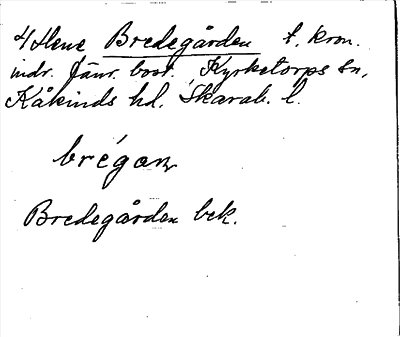 4 Hene Bredegården f. kron.
indr. Jänr. bost. Kyrketorps sn,
Kåkinds hd. Skarab. l.
brégɑn
Bredegården bek.